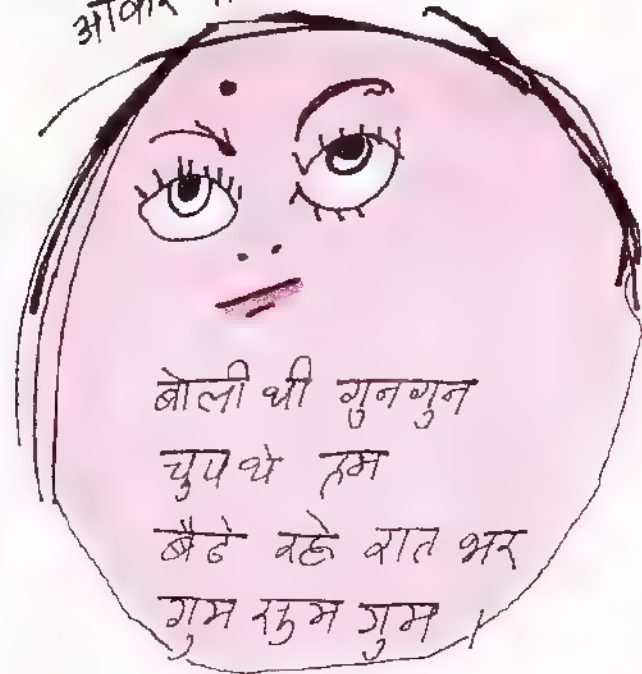 आकर
बोली थी गुनगुन
चुप थे तुम
बैठे रहे रात भर
गुम सुम गुम ।